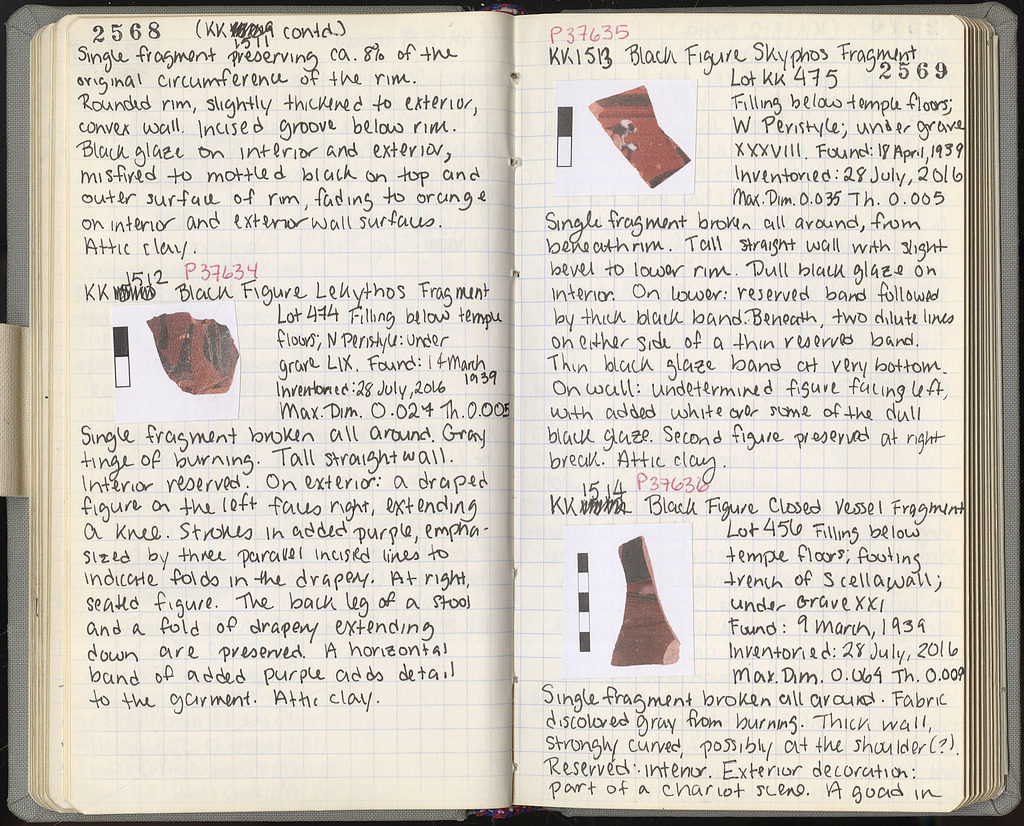 2568 (KK 1511 contd.)
Single fragment preserving ca. 8% of the
original circumference of the rim.
Rounded rim, slightly thickened to exterior,
convex wall. Incised groove below rim.
Black glaze on interior and exterior,
misfired to mottled black on top and
outer surface of rim, fading to orange
on interior and exterior wall surfaces.
Attic clay.
1512 P37634
KK Black Figure Lekythos Fragment
Lot 474 Filling below temple
floors; N Peristyle: under
grave LIX. Found: 14 March
1939
Inventoried: 28 July, 2016
Max. Dim. 0.027 Th. 0.005
Single fragment broken all around. Gray
tinge of burning. Tall straight wall.
Interior reserved. On exterior: a draped
figure on the left faces right, extending
a knee. Strokes in added purple, empha-
sized by three parallel incised lines to
indicate folds in the drapery. At right,
seated figure. The back leg of a stool
and a fold of drapery extending
down are preserved. A horizontal
band of added purple adds detail
to the garment. Attic clay.
P37635
KK1513 Black Figure Skyphos Fragment
2569
Lot KK 475
Filling below temple floors;
W Peristyle; under grave
XXXVIII. Found: 18 April, 1939
Inventoried: 28 July, 2016
Max. Dim. 0.035 Th. 0.005
Single fragment broken all around, from
beneath rim. Tall straight wall with slight
bevel to lower rim. Dull black glaze on
interior. On lower: reserved band followed
by thick black band. Beneath, two dilute lines
on either side of a thin reserved band.
Thin black glaze band at very bottom.
On wall: undetermined figure facing left,
with added white over some of the dull
black glaze. Second figure preserved at right
break. Attic clay.
1514 P37636
KK Black Figure Closed Vessel Fragment
Lot 456 Filling below
temple floors; footing
trench of S cella wall;
under Grave XXI
Found: 9 March, 1939
Inventoried: 28 July, 2016
Max. Dim. 0.064 Th. 0.009
Single fragment broken all around. Fabric
discolored gray from burning. Thick wall,
strongly curved, possibly at the shoulder(?).
Reserved interior. Exterior decoration:
part of a chariot scene. A goad in